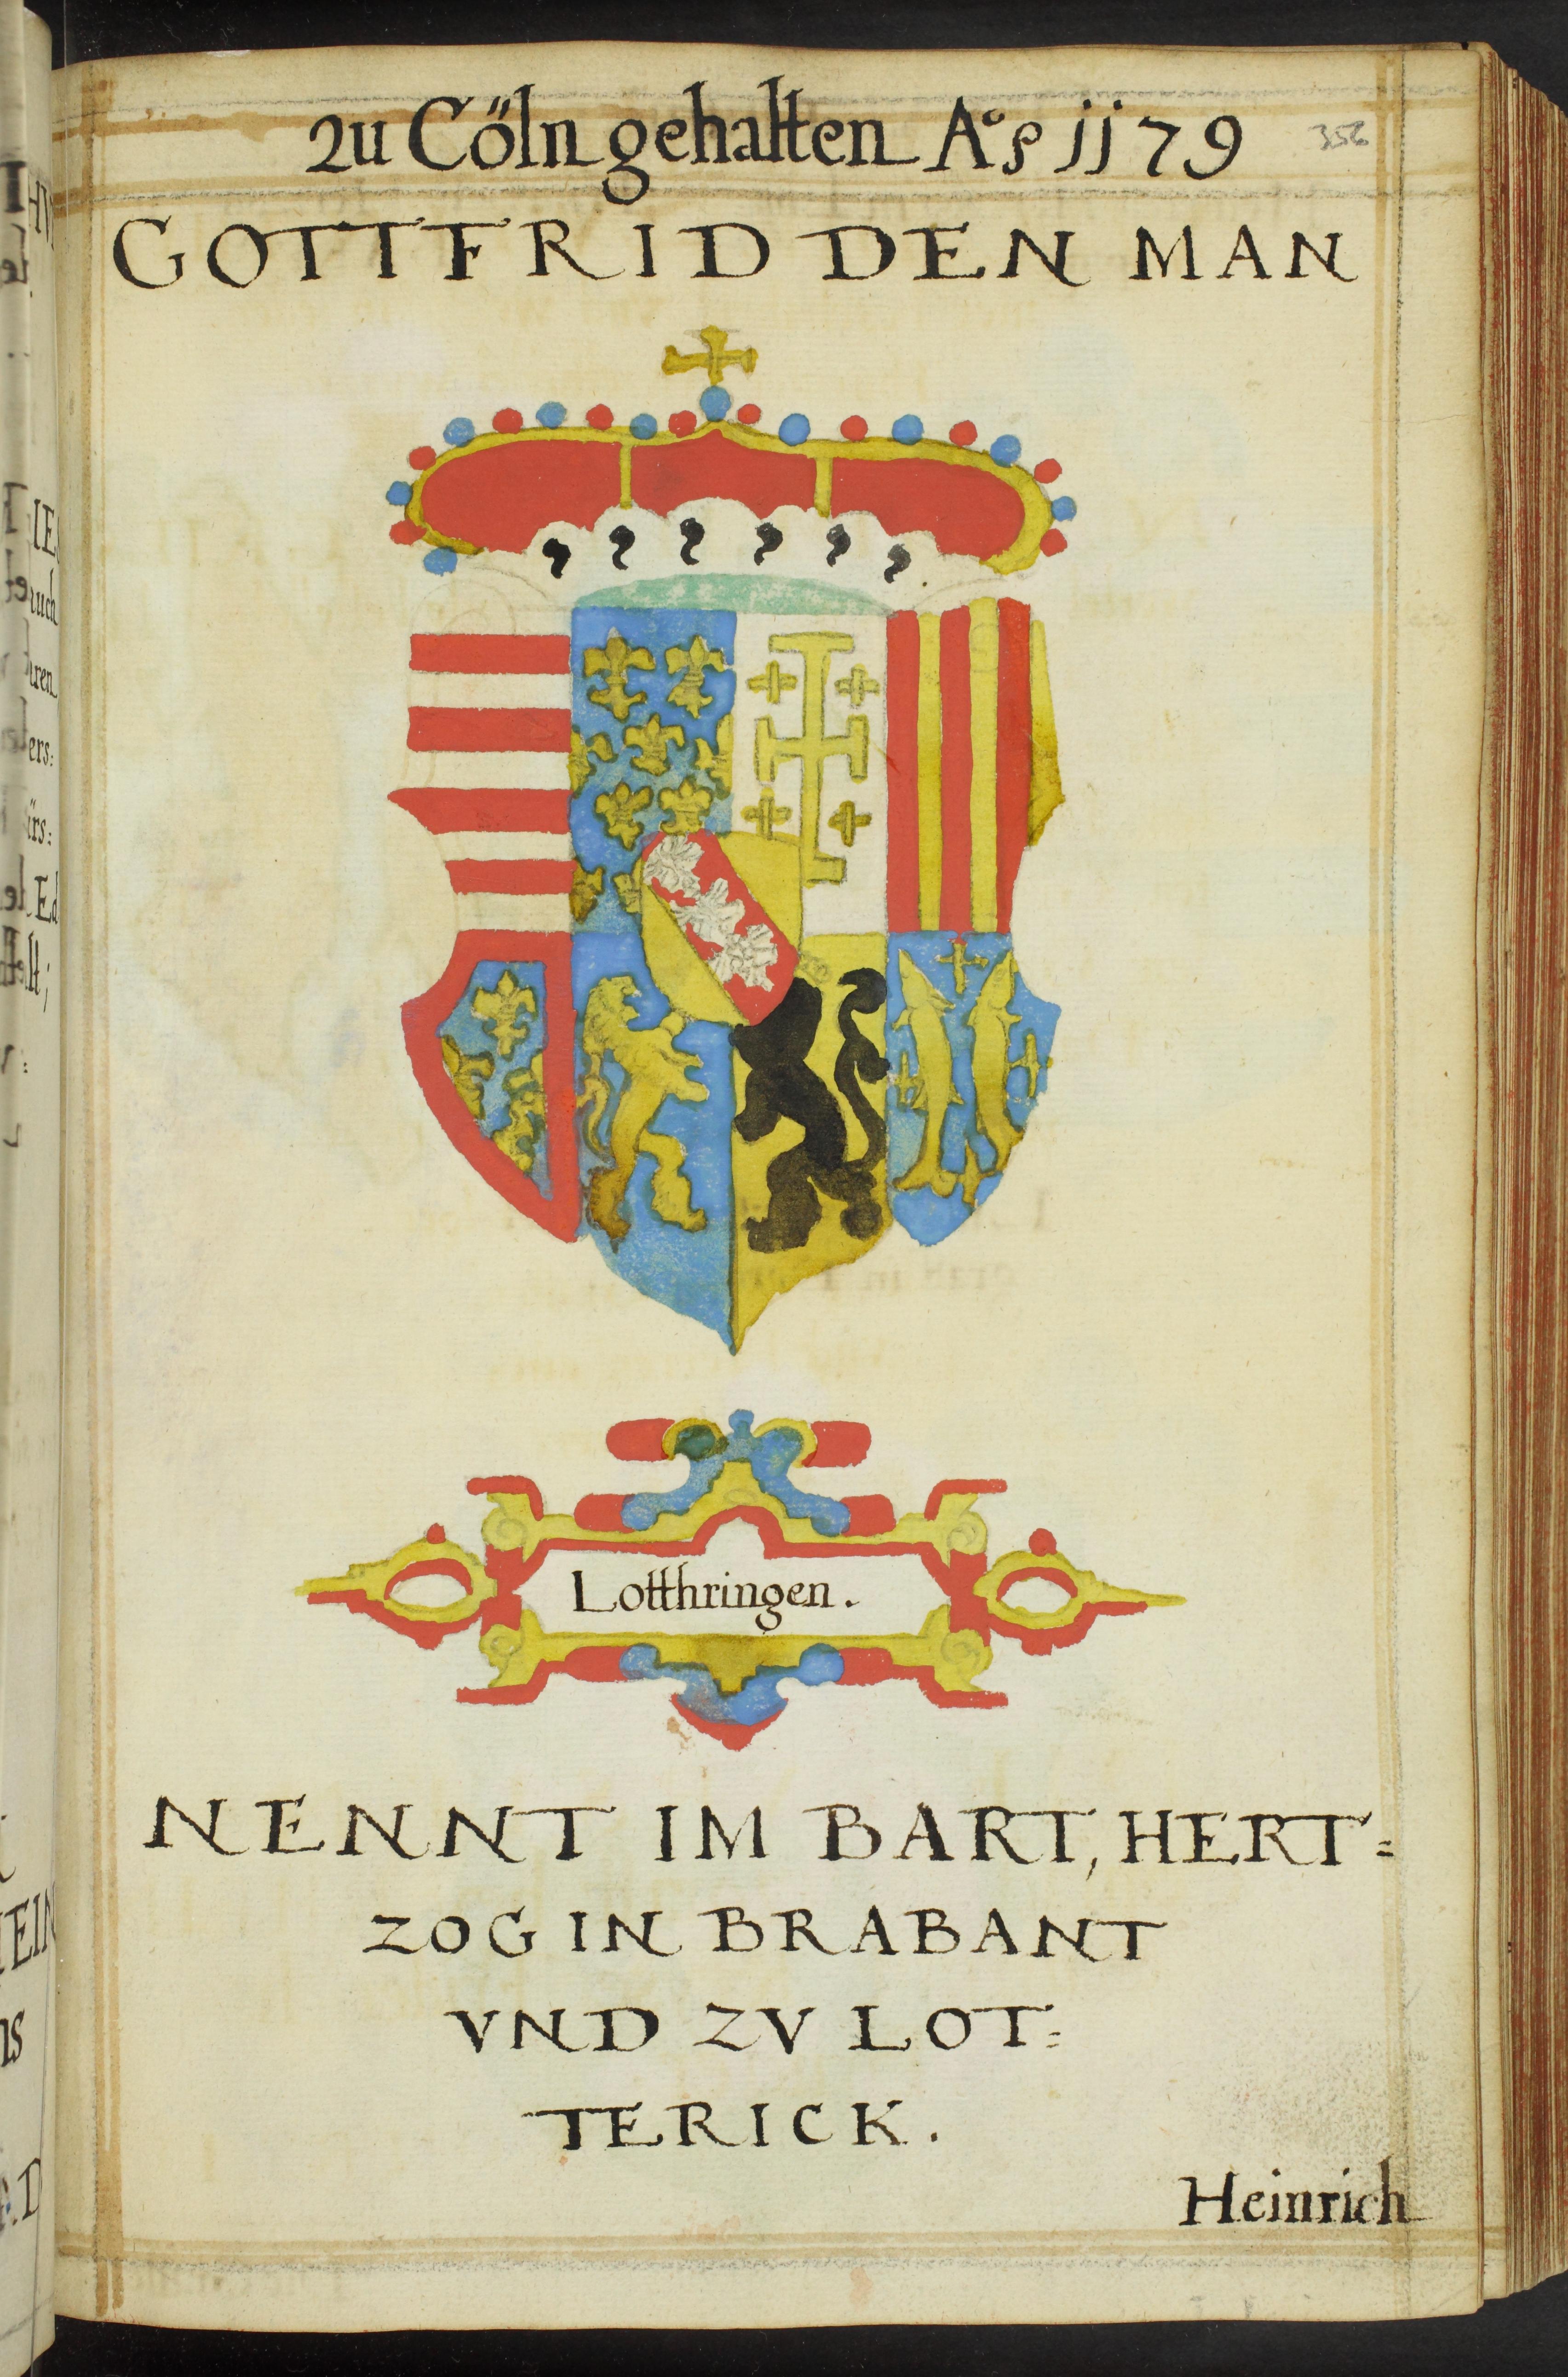 zu Cöln gehalten A° 1179
356
GOTTFRID DEN MAN
Lotthringen.
NENNT IM BART, HERT=
ZOG IN BRABANT
VND ZV LOT=
TERICK.
Heinrich